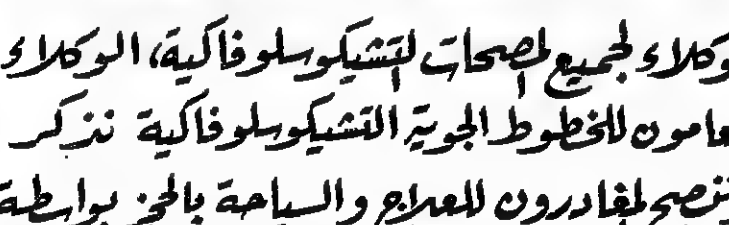 وكلاء لجميع المصحات التشيكوسلوفاكية، الوكلاء
عامون للخطوط الجوية التشيكوسلوفاكية نذكر
ننصح المغادرون للعلاج والسياحة بالحجز بواسطة